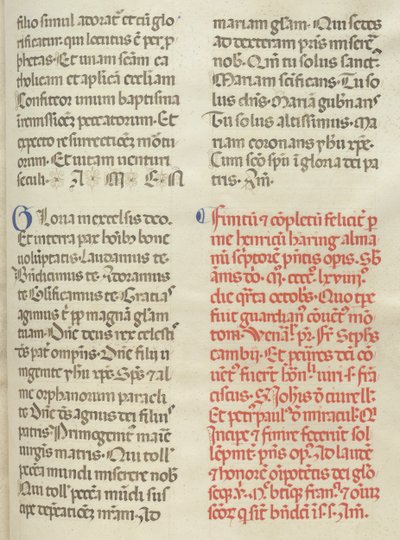 filio simul adorat̃ et cũ glo
rificatur. qui locutus ẽ per p̱
phetas. Et unam scãm ca
tholicam et aplicã eccliam
Confiteor unum baptisma
ĩ remissiõeȝ peccatorum. Et
expecto resurrectioneȝ mõtu
orum. Et vitam venturi
seculi. A M E N
Gloria in excelsis deo.
Et in terra pax hoĩbȝ bone
volũptatis. Laudamus te.
Bñdicimus te. Adoramus
te. Glificamus te. Gracias
agimus t̃ pp̱ magnã glam
tuam. Dñe deus rex celesti
s pat̃ omp̃ns. Dñe fili uni
ingenite yhũ xp̃e. Spũs & al
me orphanorum paracli
te. Dñe agnus dei filius
patris. Primogenit marie
virginis matris. Qui toll
pccã mundi miserere nob
Qui toll pccã mũdi sus
cipe dep̱cationeȝ nr̃am. Ad
mariam glam. Qui sedes
ad dexteram pris miserẽ
nob. Qm̃ tu solus sanct
Mariam scificans. Tu so
lus dñs. Mariã gub̃nans
Tu solus altissimus. Ma
riam coronans yhũ xp̃e.
Cum sco spũ in gloria dei pa
tris. Am̃.
Finitũ & cõpletũ feliciť p̱
me henricũ haring alma
nũ sc̃ptorẽ p̃ntis opis. Sb
anis dõ. Mº. cccc. lxviiiº.
die q̃rta octobs. Quo tpe
fuit guardian cõvent̃ mõ
tom̃. Venal. pr̃. Fr̃ Stephs
cambii. Et p̱
vent̃ fuert hõn. viri. s. frã
ciscus. S. Johis d̃ civrell.
Et petr paul d̃ miracul. Qi
Incipe & finire fecerũt sol
lẽpnit p̃ns op. Ad laudẽ
& honorẽ oĩpotẽtis dei glo
seqȝ. v. Mº. btiqȝ frans & oĩuȝ
scorȝ q st̃ bñdcti ĩ s. s. Am̃.